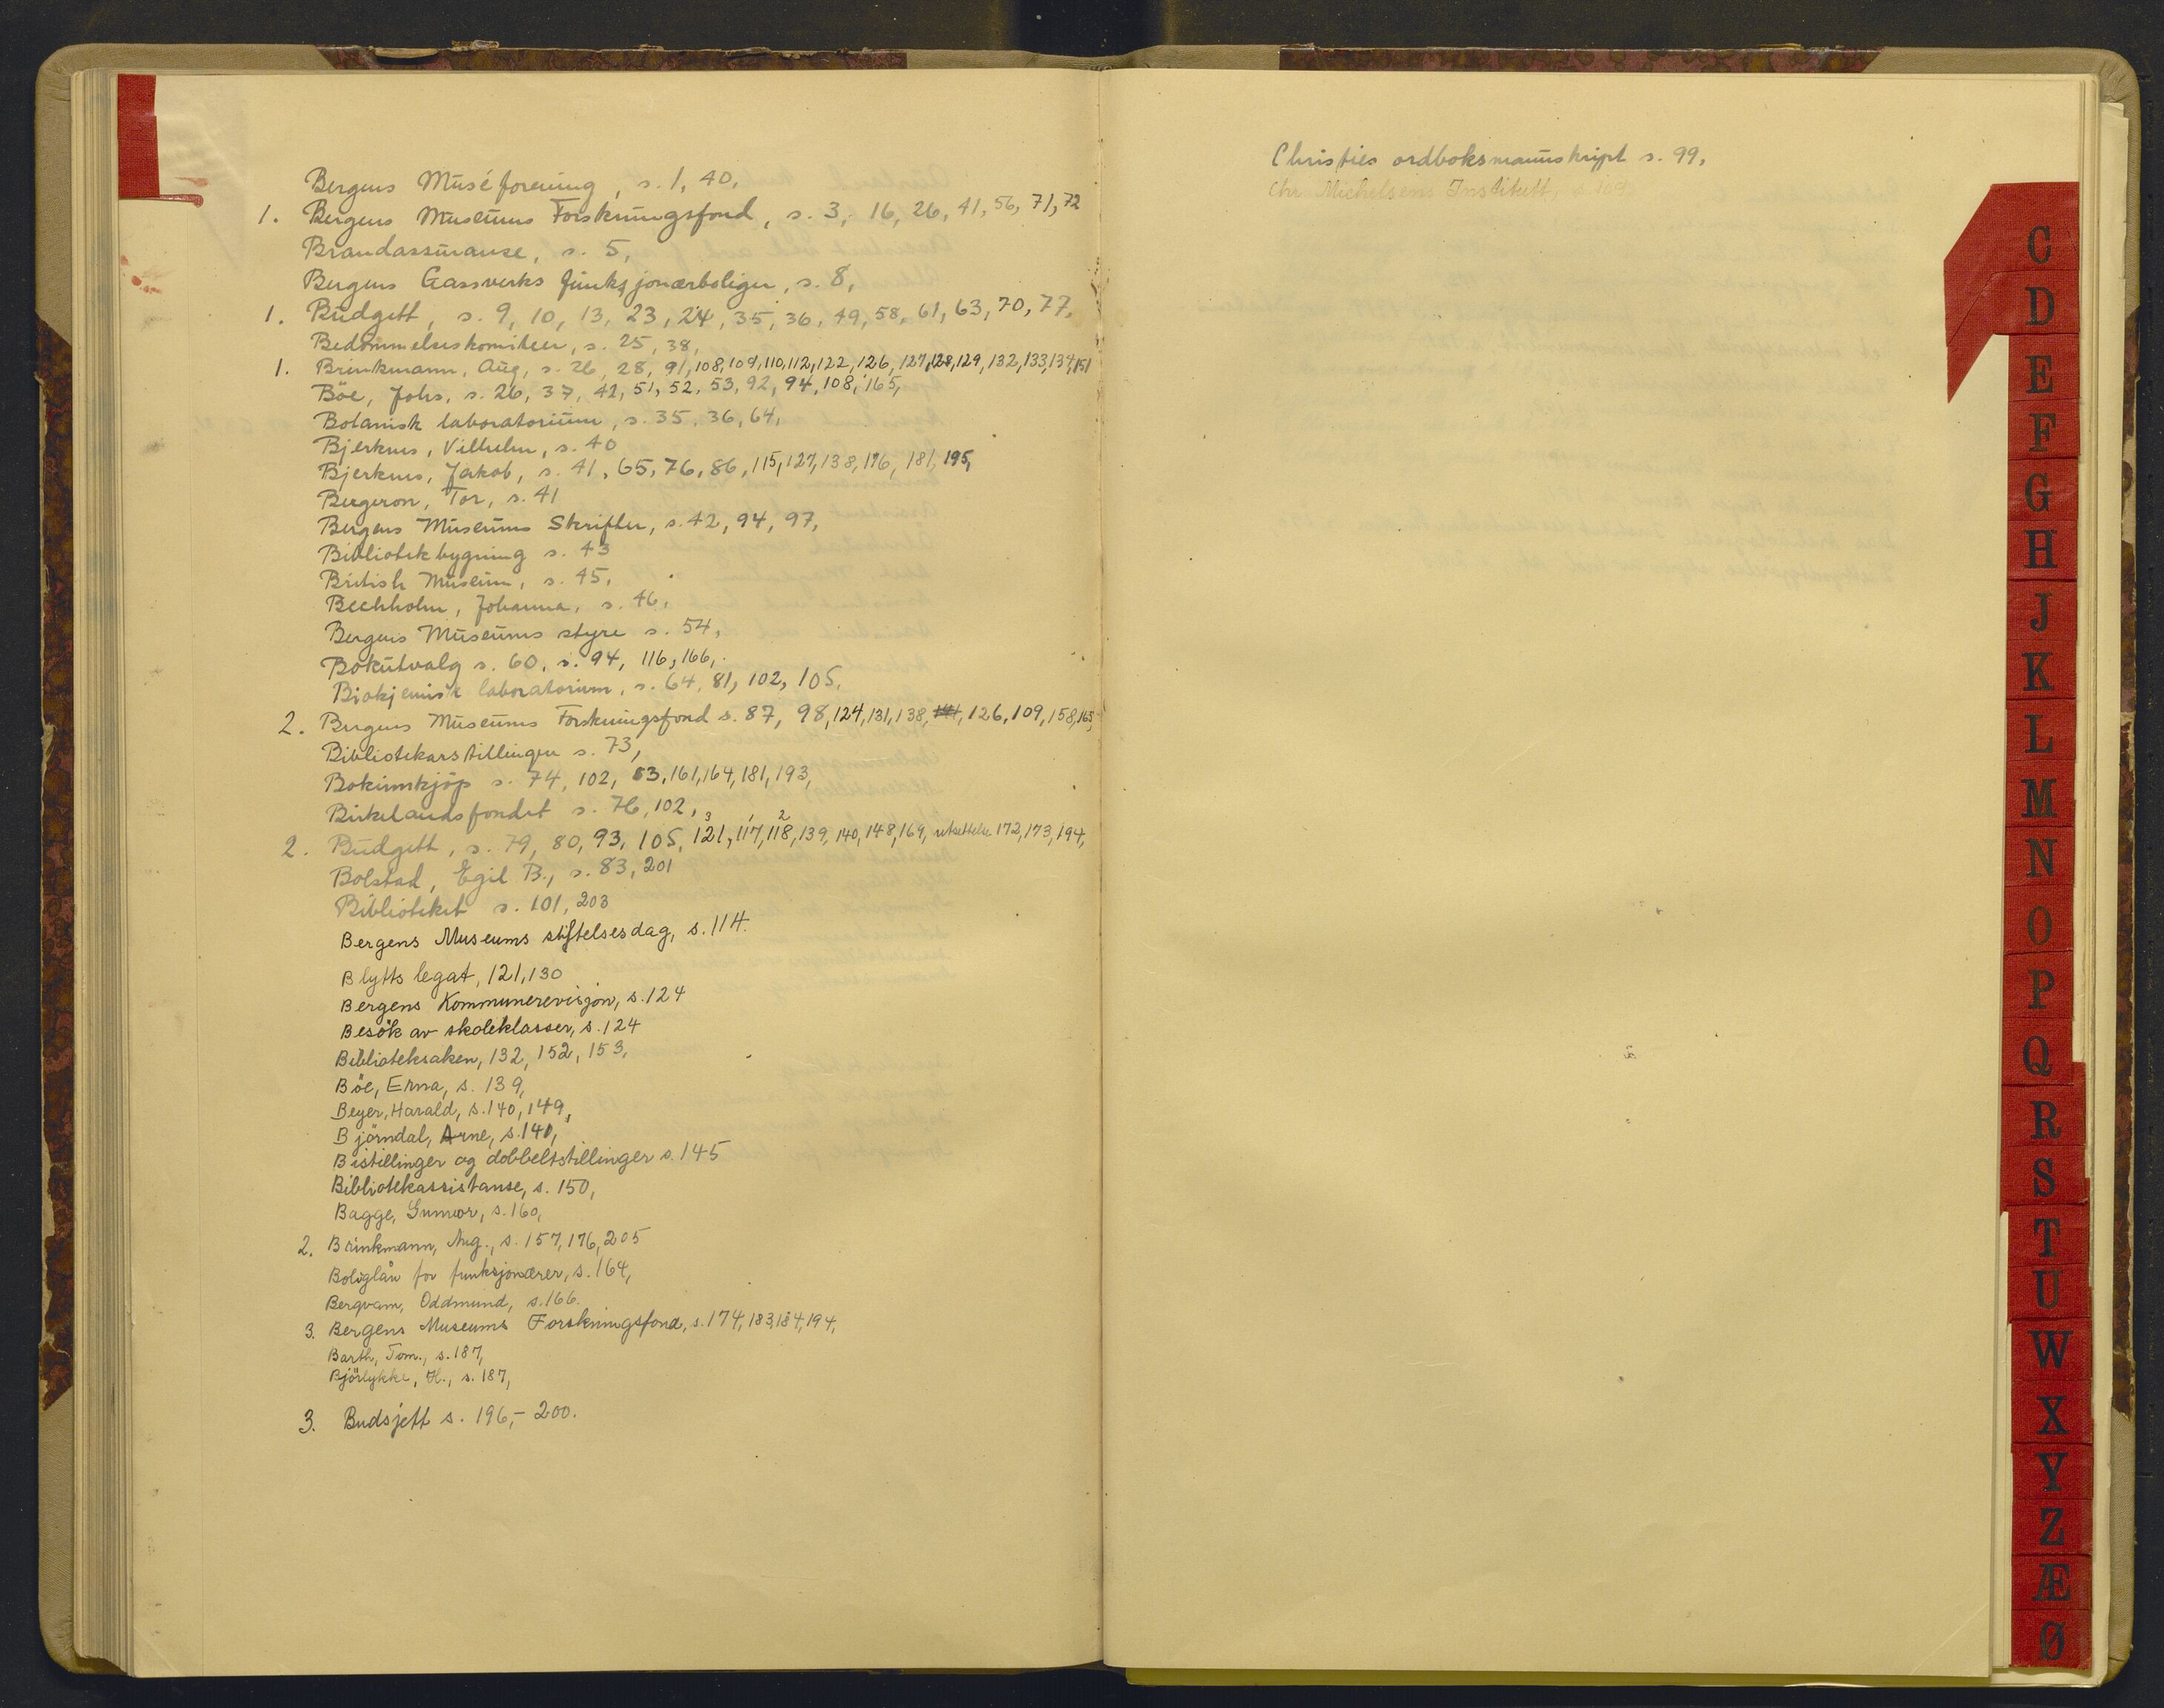 Bergens Muséforening, s. 1, 40.
1. Bergens Museums Forskningsfond, s. 3, 16, 26, 41, 56, 71, 72
Brandassuranse, s. 5,
Bergens Gassverks funksjonærboliger, s. 8,
1. Budgett, s. 9, 10, 13, 23, 24, 35, 36, 49, 58, 61, 63, 70, 77,
Bedömmelseskomiteer, s. 25, 38,
1. Brinkmann, Aug, s. 26, 28, 91, 108, 109, 110, 112, 122, 126, 127, 128, 129, 132, 133, 134, 151
Böe, Johs, s. 26, 37, 42, 51, 52, 53, 92, 94, 108, 165,
Botanisk laboratorium, s. 35, 36, 64,
Bjerknes, Vilhelm, s. 40
Bjerknes, Jakob, s. 41, 65, 76, 86, 115, 127, 138, 176, 181, 195,
Bergeron, Tor, s. 41
Bergens Museums Skrifter, s. 42, 94, 97,
Bibliotekbygning s. 43
British Museum, s. 45,
Bechholm, Johanna, s. 46,
Bergens Museums styre s. 54,
Bokutvalg s. 60, s. 94, 116, 166,
Biokjemisk laboratorium, s. 64, 81, 102, 105,
2. Bergens Museums Forskningsfond s. 87, 98, 124, 131, 138, 141, 126, 109, 158, 165,
Bibliotekarstillingen s. 73,
Bokinnkjöp s. 74, 102, 83, 161, 164, 181, 193,
Birkelandsfondet s. 76, 102,
3 1 2
2. Budgett, s. 79, 80, 93, 105, 121, 117, 118, 139, 140, 148, 169, utsettelse 172, 173, 194,
Bolstad, Egil B., s. 83, 201
Biblioteket s. 101, 203
Bergens Museums stiftelsesdag, s. 114.
Blytts legat, 121, 130
Bergens Kommunerevisjon, s. 124
Besök av skoleklasser, s. 124
Biblioteksaken, 132, 152, 153,
Böe, Erna, s. 139,
Beyer, Harald, s. 140, 149,
Björndal, Arne, s. 140,
Bistillinger og dobbeltstillinger s. 145
Bibliotekassistanse, s. 150,
Bagge, Gunvor, s. 160,
2. Brinkmann, Aug., s. 157, 176, 205
Boliglån for funksjonærer, s. 164,
Bergvam, Oddmund, s. 166.
3. Bergens Museums Forskningsfond, s. 174, 183, 184, 194,
Barth, Tom., s. 187,
Björlykke, H., s. 187,
3. Budsjett s. 196,- 200.
Christies ordboksmanuskript s. 99,
Chr. Michelsens Institutt, s. 109
C
D
E
F
G
H
J
K
L
M
N
O
P
Q
R
S
T
U
W
X
Y
Z
Æ
Ø